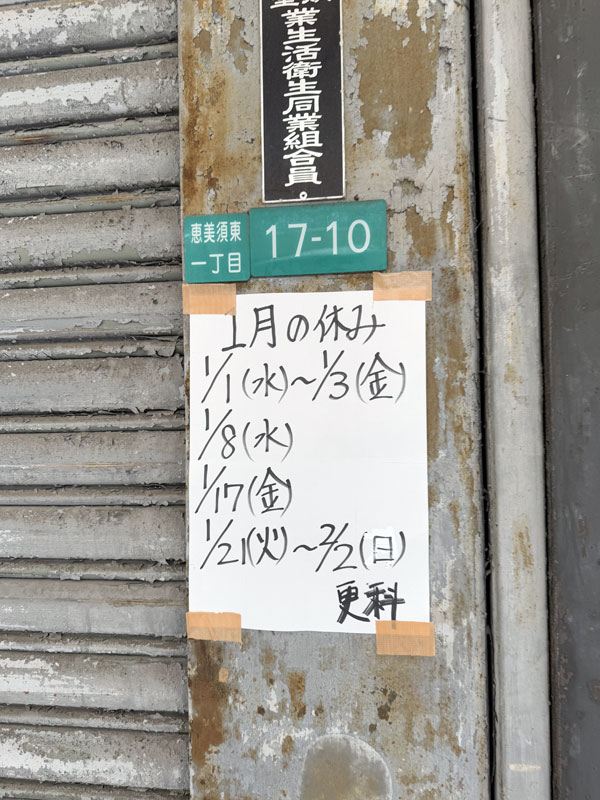 業生活衛生同業組合員
恵美須東
一丁目
17-10
1月の休み
1/1(水)～1/3(金)
1/8(水)
1/17(金)
1/21(火)～2/2(日)
更科